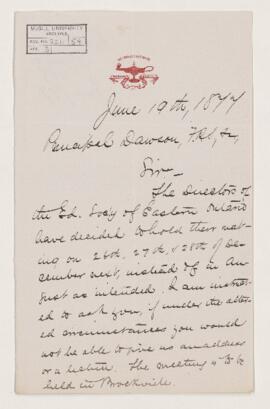 McGILL UNIVERSITY
ARCHIVES
ACC. NO. 927/54
REF. 31
June 19th, 1877
Principal Dawson, F.R.S., &c,
Sir—
The Directors of
the Ed. Soc'y of Eastern Ontario
have decided to hold their meet-
ing on 26th, 27th, & 28th of De-
cember next, instead of in Au-
gust as intended. I am instruct-
ed to ask you, if under the alter-
ed circumstances you would
not be able to give us an address
or a lecture. The meeting is to be
held in Brockville.